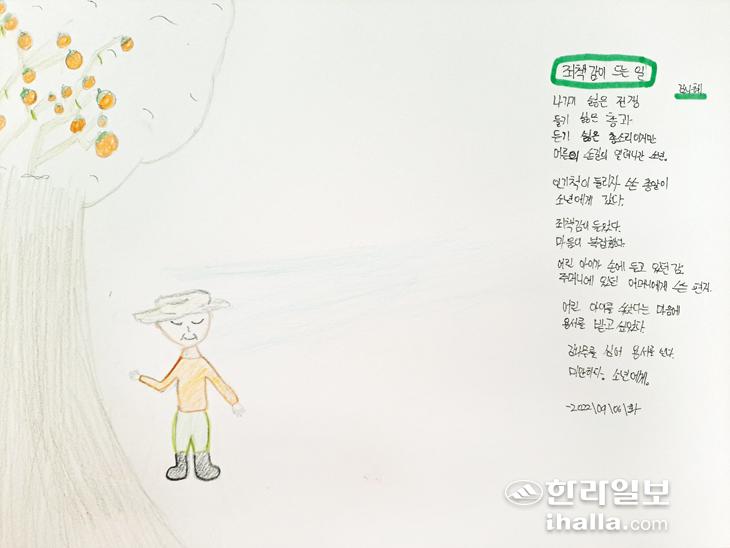 죄책감이 드는 일
김나혜
나가기 싫은 전쟁
들기 싫은 총과
듣기 싫은 총소리이지만
어른의 손길의 떠나간 소년.
인기척이 들리자 쏜 총알이
소년에게 갔다.
죄책감이 들었다.
마음이 복잡했다.
어린 아이가 손에 들고 있던 감.
주머니에 있던 어머니에게 쓰는 편지.
어린 아이를 쐈다는 마음에
용서를 받고 싶었다.
감나무를 심어 용서를 빈다.
미안하다. 소년에게.
-2022\09\06\화\
한라일보
ihalla.com